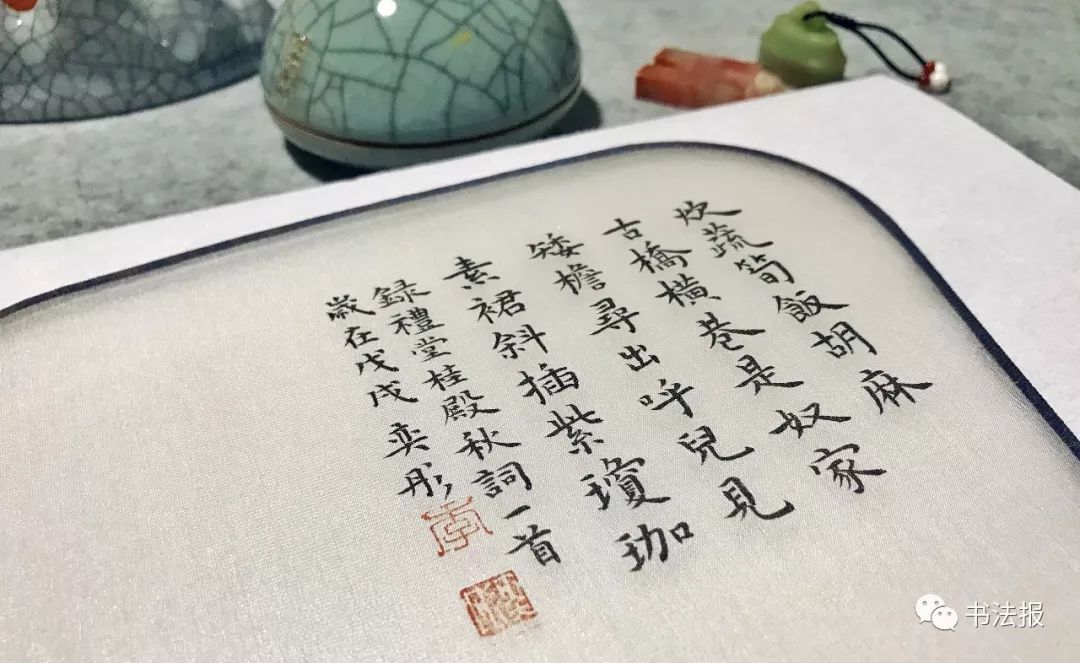 炊蔬筍飯胡麻
古橋橫巷是奴家
矮檐尋出呼兒見
素裙斜插紫瓊珈
錄禮堂桂殿秋詞一首
歲在戊戌奕彤
书法报